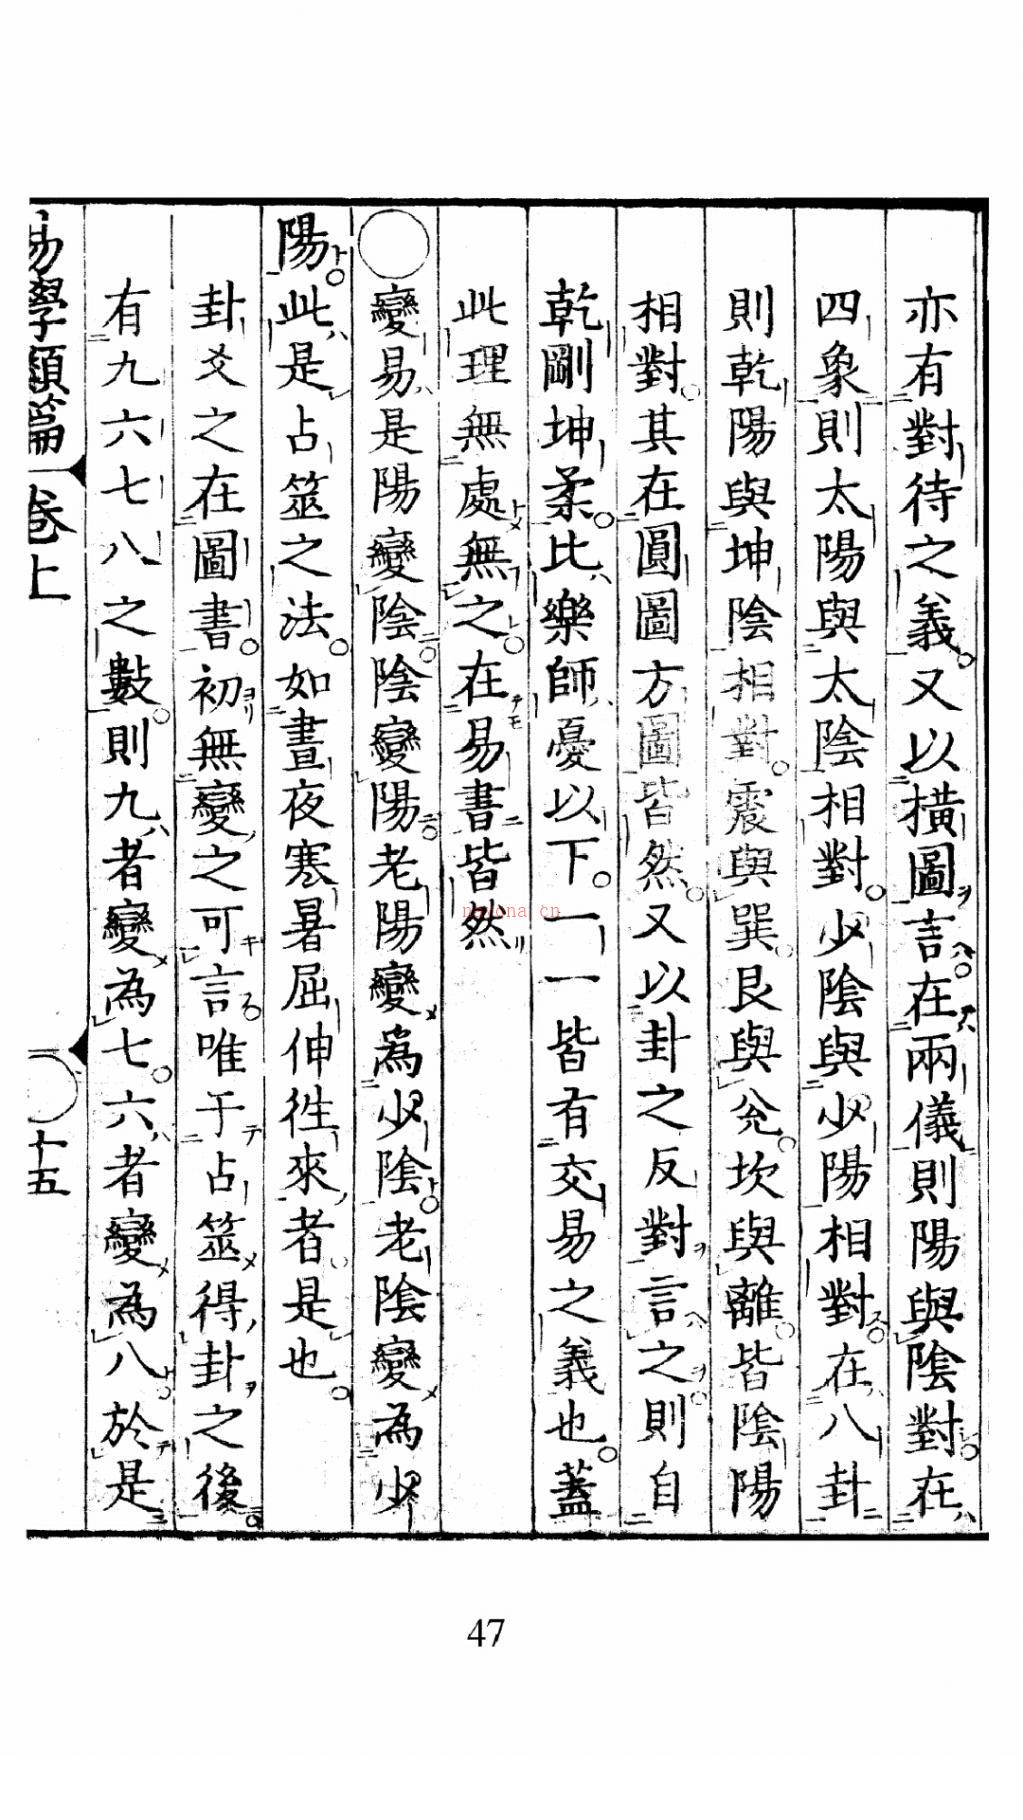 亦有對待之義又以橫圖言在兩儀則陽與陰對在
四象則太陽與太陰相對少陰與少陽相對在八卦
則乾陽與坤陰相對震與巽艮與兌坎與離皆陰陽
相對其在圓圖方圖皆然又以卦之反對言之則自
乾剛坤柔比樂師憂以下一一皆有交易之義也蓋
此理無處無之在易書皆然
○變易是陽變陰陰變陽老陽變為少陰老陰變為少
陽此是占筮之法如晝夜寒暑屈伸徃來者是也
卦爻之在圖書初無變之可言唯于占筮得卦之後
有九六七八之數則九者變為七六者變為八於是
易學類篇 卷上 十五
47
nayona.cn